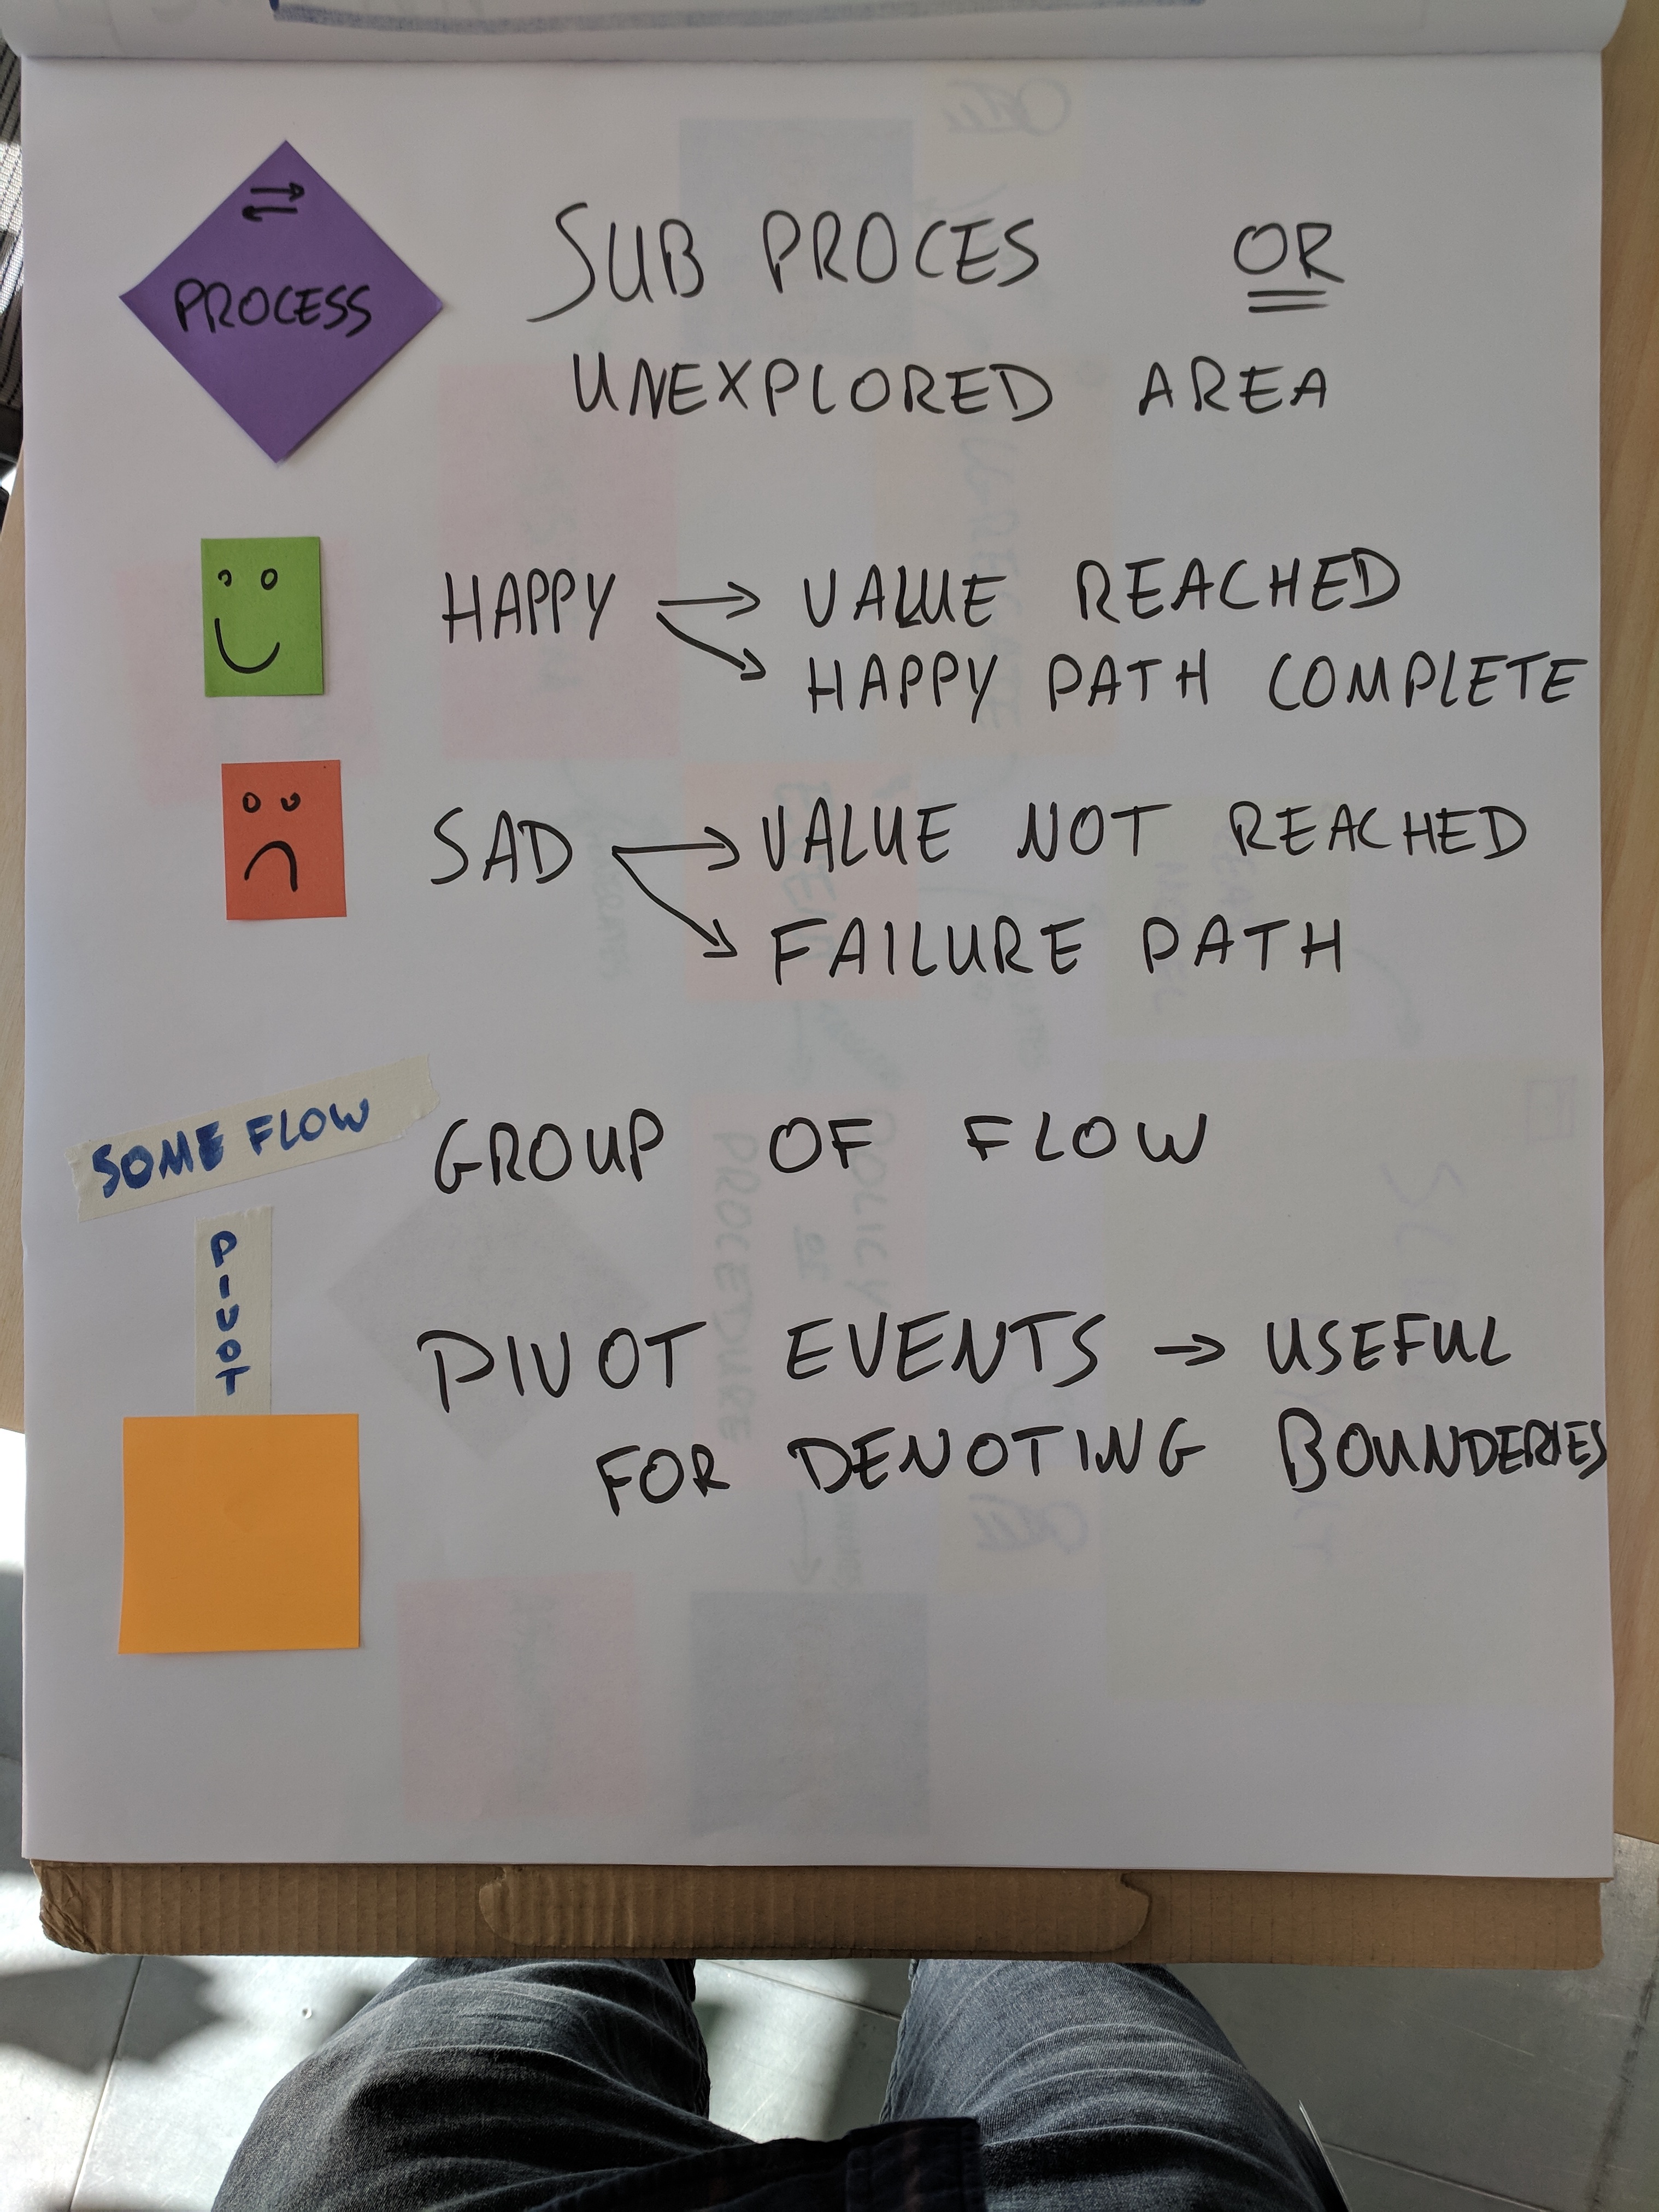 PROCESS
SUB PROCES OR
UNEXPLORED AREA
HAPPY → VALUE REACHED
HAPPY PATH COMPLETE
SAD → VALUE NOT REACHED
FAILURE PATH
SOME FLOW
GROUP OF FLOW
PIVOT
PIVOT EVENTS → USEFUL
FOR DENOTING BOUNDERIES
POLICY
OR
PROCEDURE